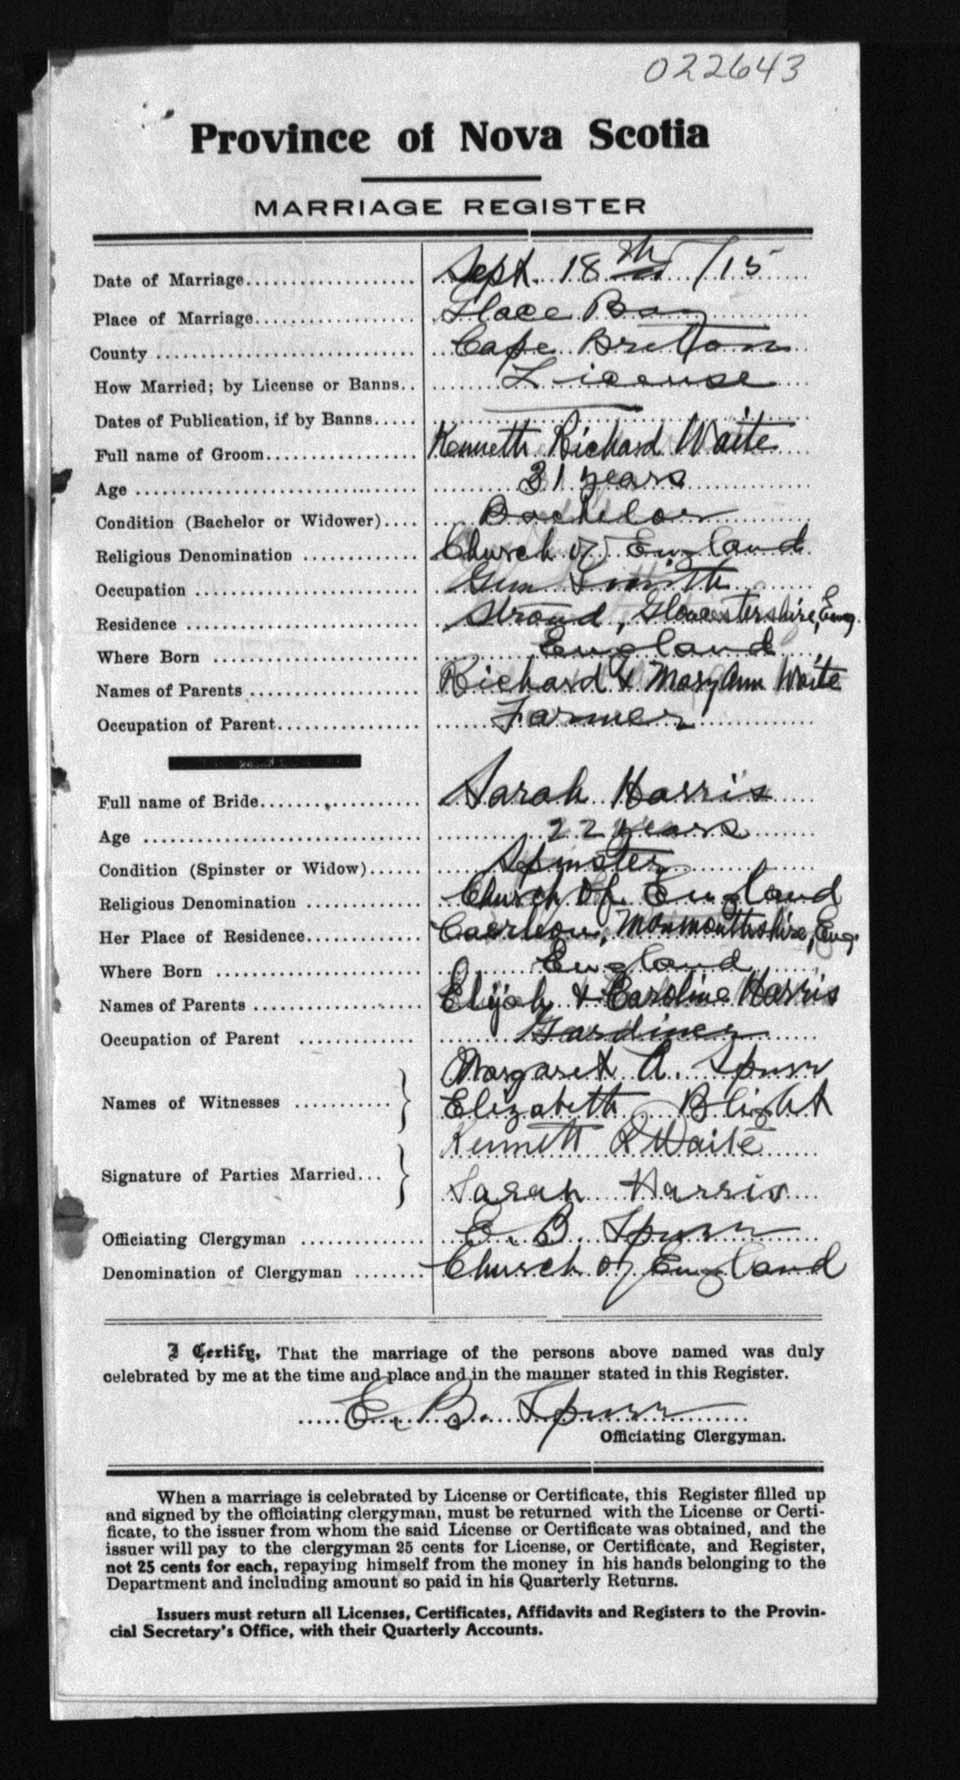 022643
Province of Nova Scotia
MARRIAGE REGISTER
Date of Marriage.................... Sept. 18th /15
Place of Marriage................... Glace Bay
County .............................. Cape Breton
How Married; by License or Banns.. License
Dates of Publication, if by Banns..... —
Full name of Groom.................. Kenneth Richard Waite
Age .................................. 31 years
Condition (Bachelor or Widower).... Bachelor
Religious Denomination ............. Church of England
Occupation .......................... Gun Smith
Residence ........................... Stroud, Gloucestershire, Eng.
Where Born ........................ England
Names of Parents ................... Richard & Mary Ann Waite
Occupation of Parent................. Farmer
Full name of Bride................... Sarah Harris
Age ................................. 22 years
Condition (Spinster or Widow)...... Spinster
Religious Denomination ............. Church of England
Her Place of Residence............. Caerleon, Monmouthshire, Eng.
Where Born ........................ England
Names of Parents ................... Elijah & Caroline Harris
Occupation of Parent .............. Gardiner
Names of Witnesses ........... } Margaret A. Spurr
Elizabeth Blight
Signature of Parties Married... } Kenneth R Waite
Sarah Harris
Officiating Clergyman .............. E. B. Spurr
Denomination of Clergyman ........ Church of England
I Certify, That the marriage of the persons above named was duly
celebrated by me at the time and place and in the manner stated in this Register.
E. B. Spurr
Officiating Clergyman.
When a marriage is celebrated by License or Certificate, this Register filled up
and signed by the officiating clergyman, must be returned with the License or Certi-
ficate, to the issuer from whom the said License or Certificate was obtained, and the
issuer will pay to the clergyman 25 cents for License, or Certificate, and Register,
not 25 cents for each, repaying himself from the money in his hands belonging to the
Department and including amount so paid in his Quarterly Returns.
Issuers must return all Licenses, Certificates, Affidavits and Registers to the Provin-
cial Secretary's Office, with their Quarterly Accounts.